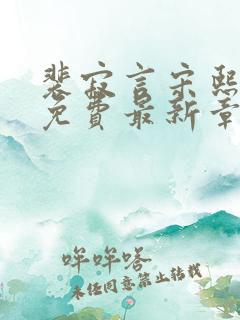 裴寂言宋熙
免费最新章
哞哞嗒
未经同意禁止转载